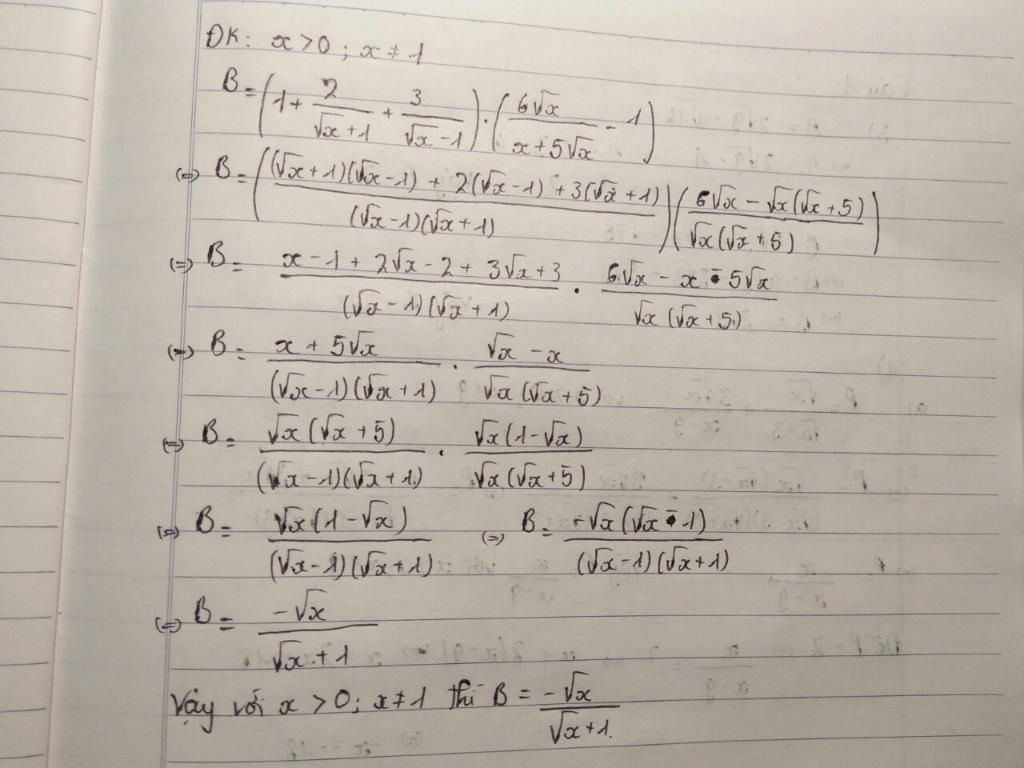 ĐK: x > 0 ; x ≠ 1
B = (1 + 2/(√x + 1) + 3/(√x - 1)) . (6√x/(x + 5√x) - 1)
(=) B = (((√x + 1)(√x - 1) + 2(√x - 1) + 3(√x + 1))/((√x - 1)(√x + 1))) ((6√x - √x(√x + 5))/(√x(√x + 5)))
(=) B = (x - 1 + 2√x - 2 + 3√x + 3)/((√x - 1)(√x + 1)) . (6√x - x - 5√x)/(√x(√x + 5))
(=) B = (x + 5√x)/((√x - 1)(√x + 1)) . (√x - x)/(√x(√x + 5))
(=) B = (√x(√x + 5))/((√x - 1)(√x + 1)) . (√x(1 - √x))/(√x(√x + 5))
(=) B = (√x(1 - √x))/((√x - 1)(√x + 1)) (=) B = (-√x(√x - 1))/((√x - 1)(√x + 1))
(=) B = (-√x)/(√x + 1)
Vậy với x > 0 ; x ≠ 1 thì B = (-√x)/(√x + 1)